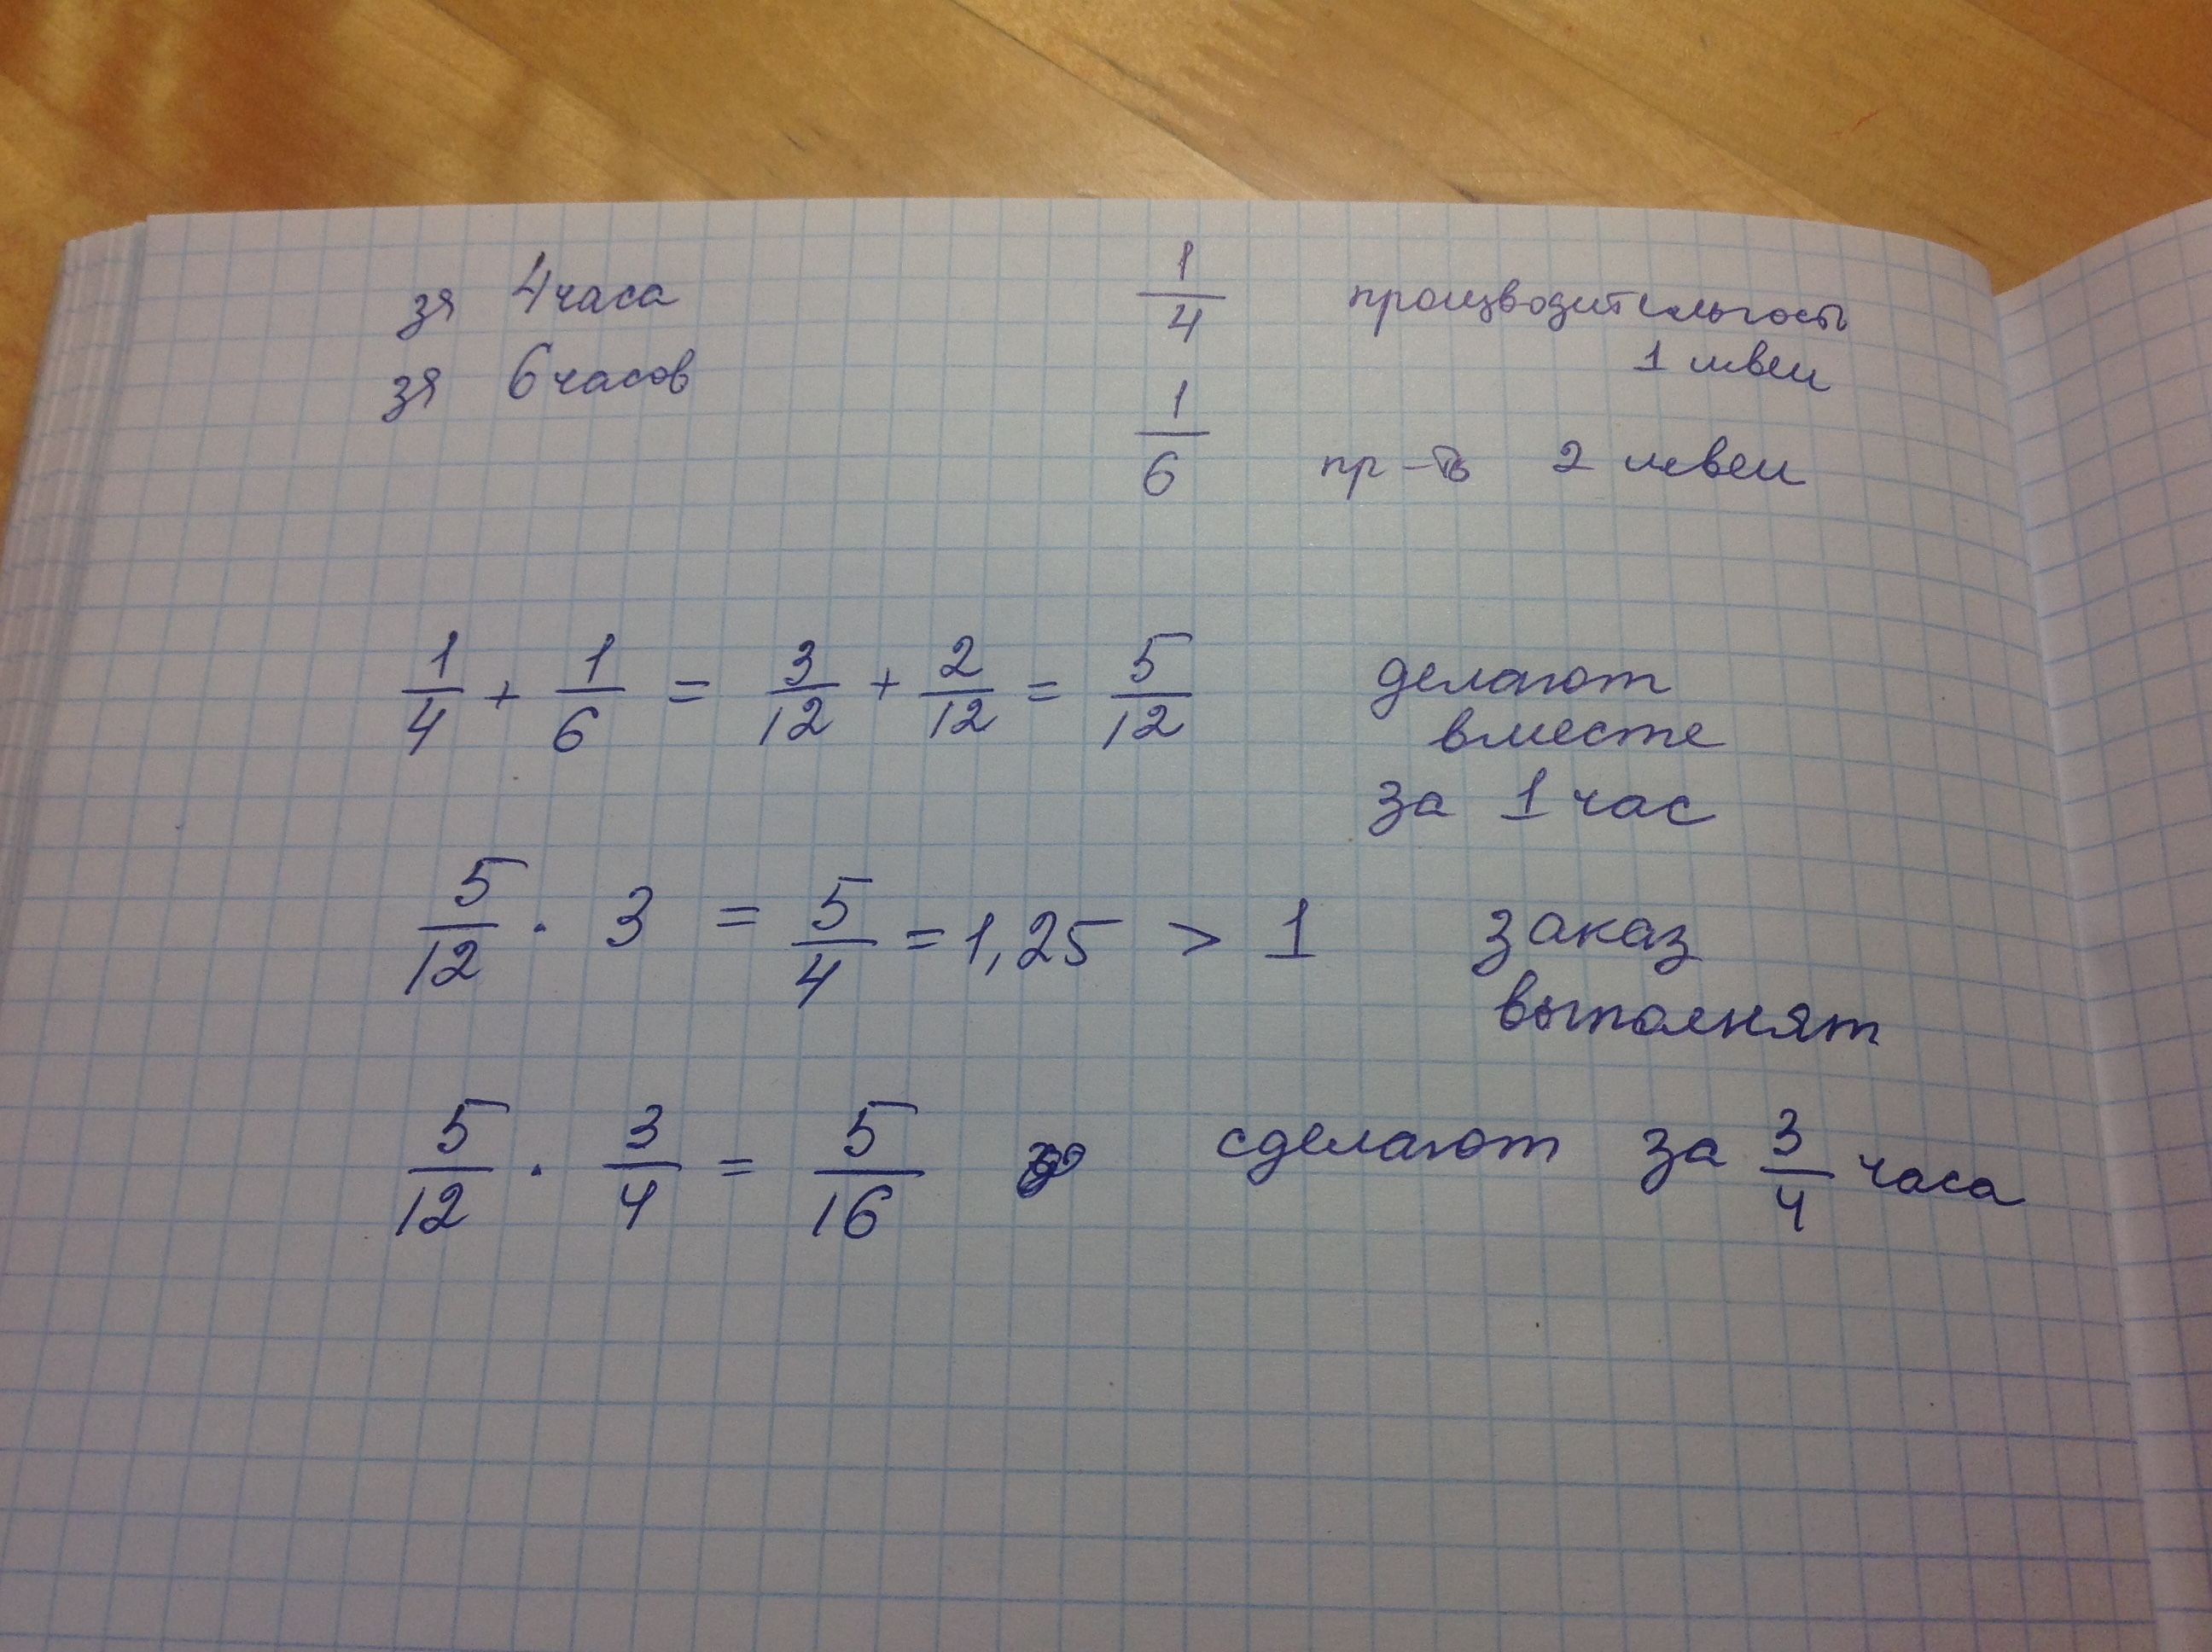 за 4 часа
за 6 часов
1/4 производительность
1 швеи
1/6 пр-ть 2 швеи
1/4 + 1/6 = 3/12 + 2/12 = 5/12 делают
вместе
за 1 час
5/12 · 3 = 5/4 = 1,25 > 1 заказ
выполнят
5/12 · 3/4 = 5/16 сделают за 3/4 часа